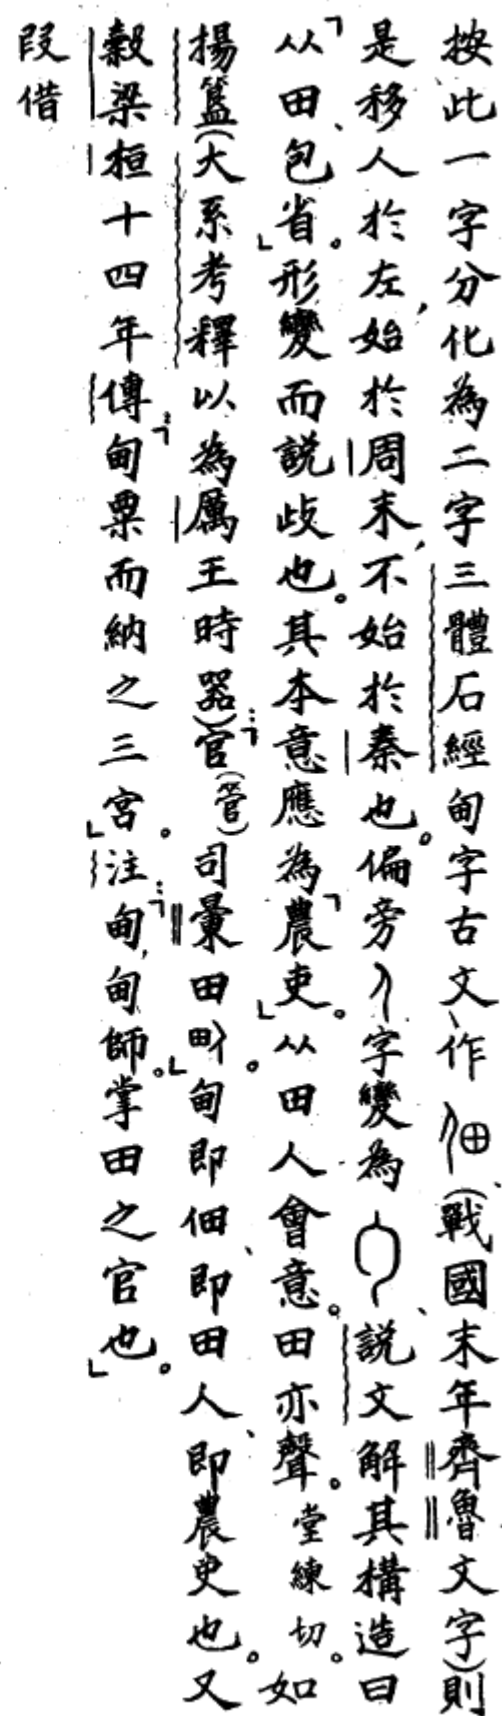 按此一字分化為二字三體石經甸字古文、作𠆢田(戰國末年齊魯文字)則
是移人於左,始於周末,不始於秦也。偏旁人字變為、說文解其構造曰
「从田、包省」。形變而說歧也。其本意應為「農吏」。从田人會意。田亦聲。堂練切。如
揚簋(大系考釋以為厲王時器):「官(管)司量田甸」。甸即佃、即田人、即農吏也。又
穀梁桓十四年傳:「甸粟而納之三宮」。注:「甸,甸師。掌田之官也」。
叚借